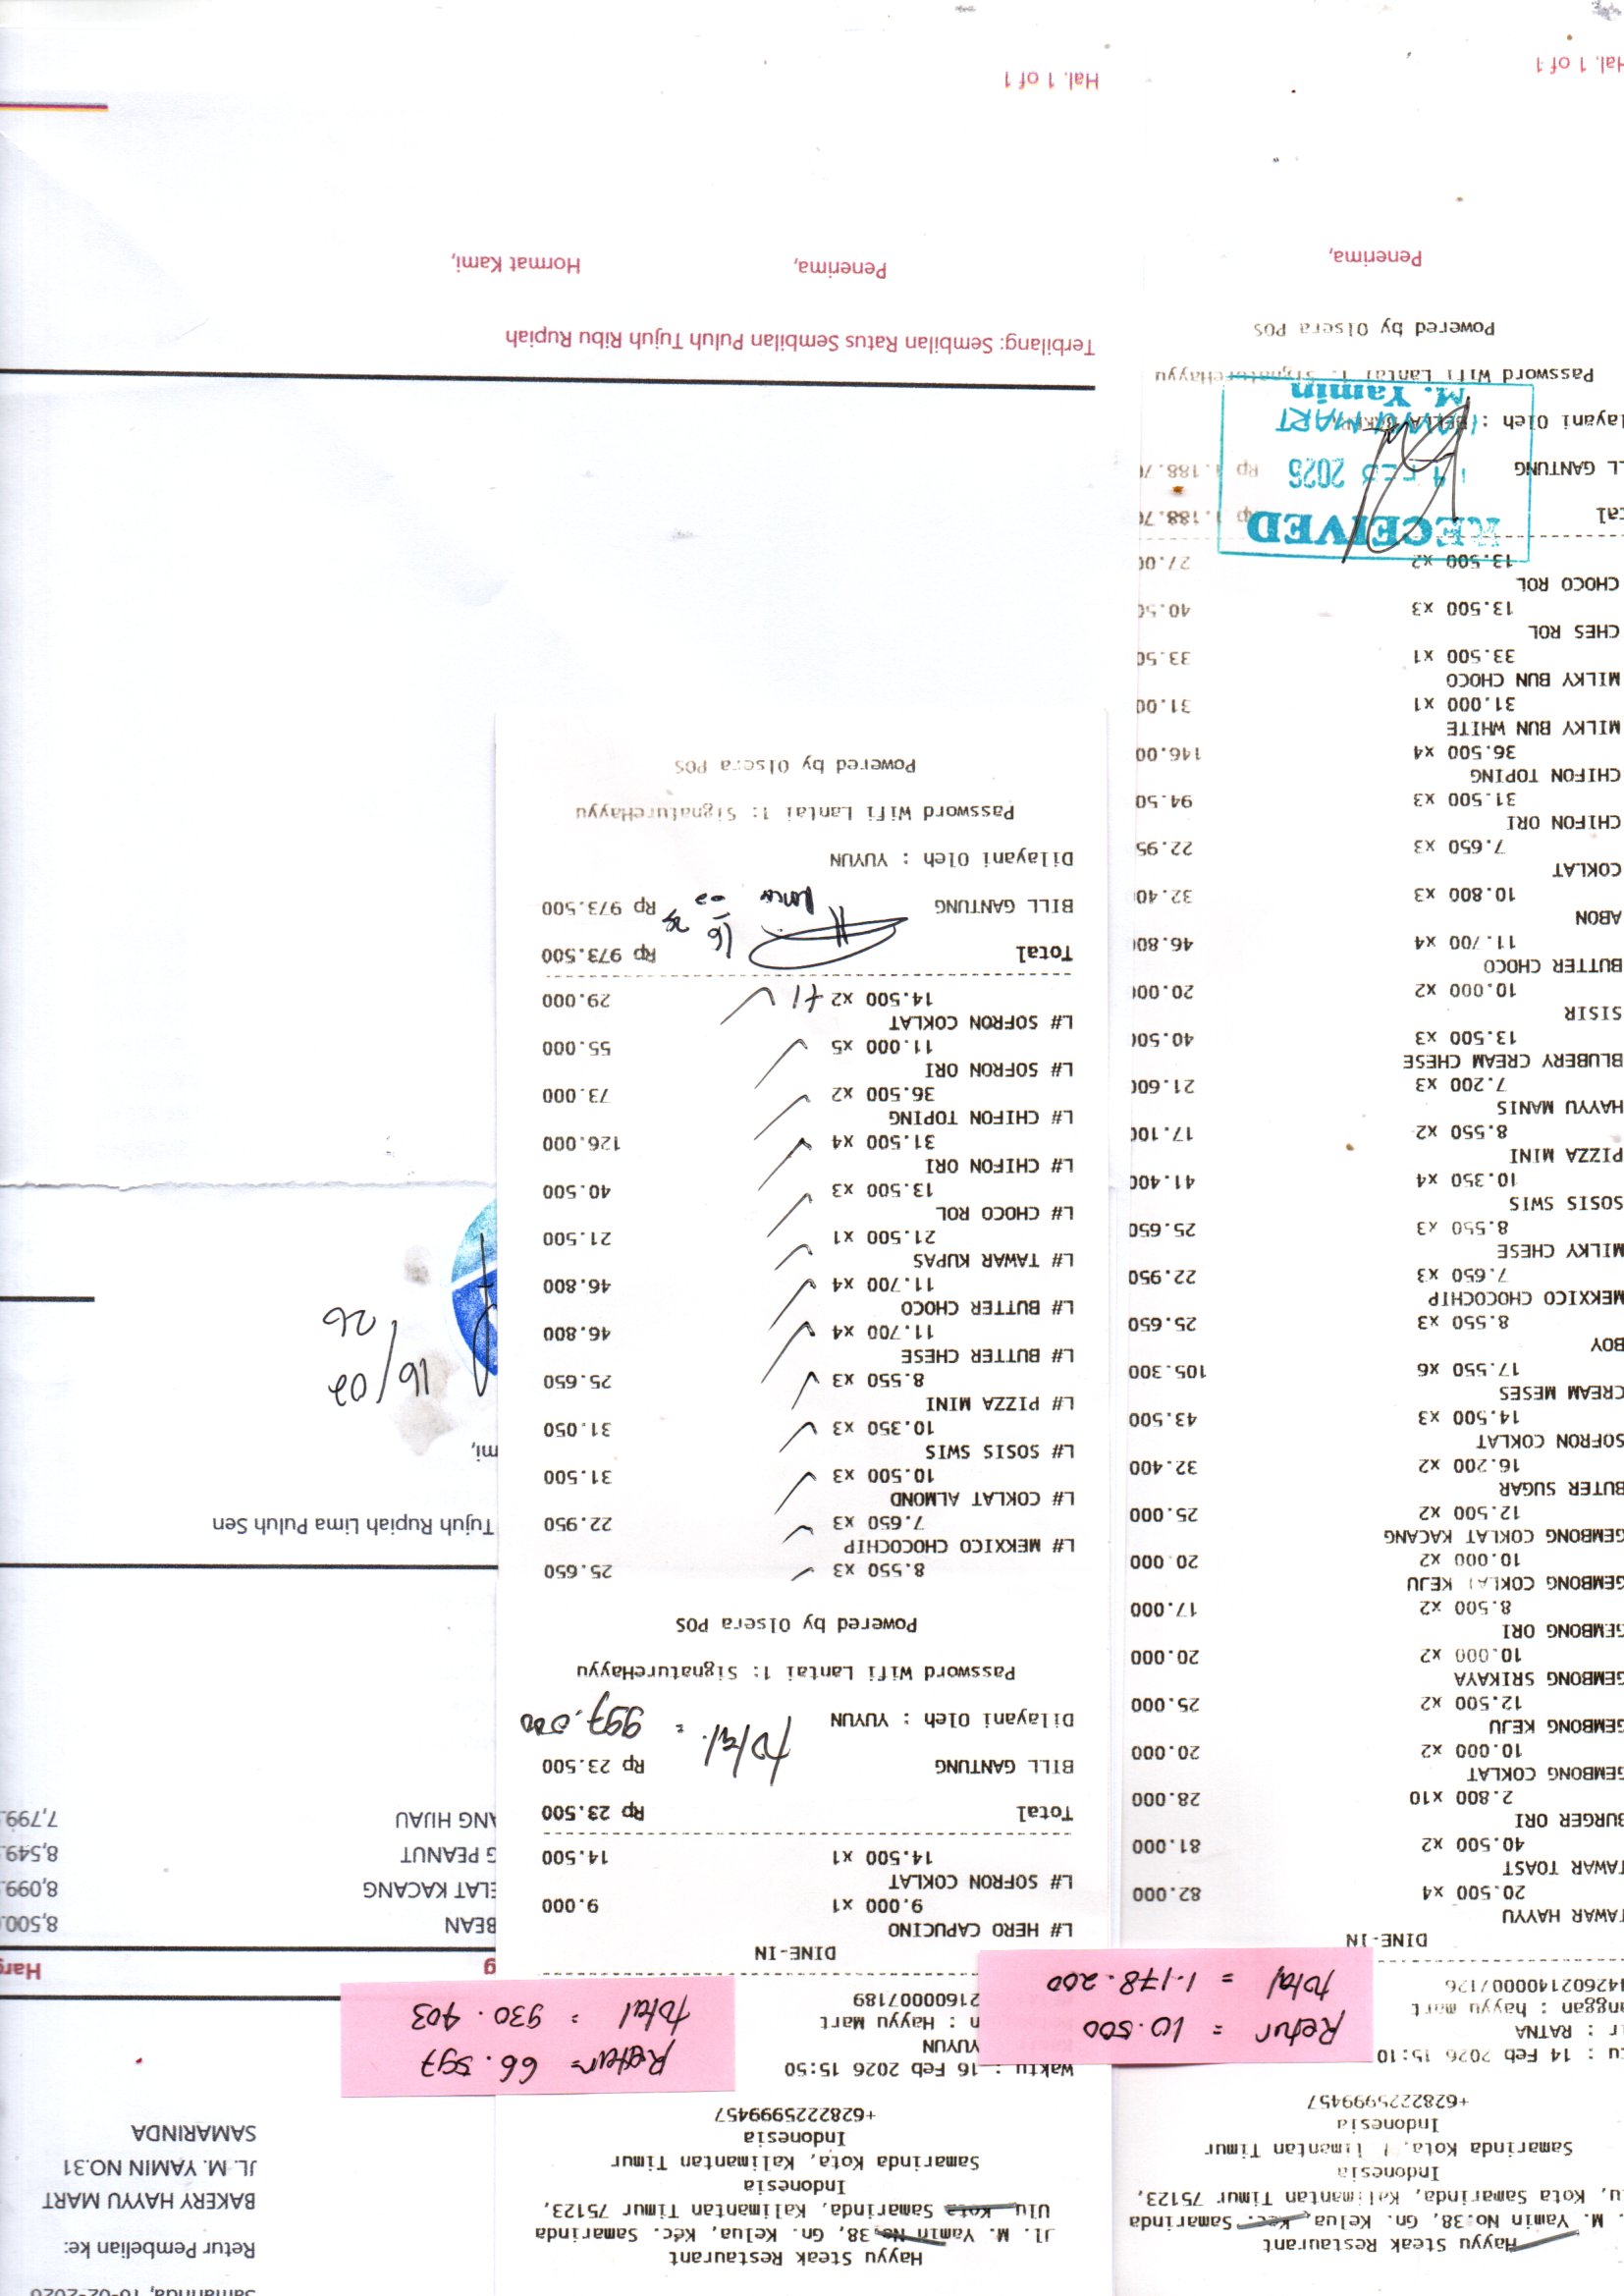 Hayyu Steak Restaurant
. M. Yamin No.38, Gn. Kelua, Kec. Samarinda
u, Kota Samarinda, Kalimantan Timur 75123,
Indonesia
Samarinda Kota, Kalimantan Timur
Indonesia
+6282225999457
tu : 14 Feb 2026 15:10
r : RATNA
nggan : hayyu mart
42602140007126
Retur = 10.500
total = 1.178.200
DINE-IN
TAWAR HAYYU
20.500 x4 82.000
TAWAR TOAST
40.500 x2 81.000
BURGER ORI
2.800 x10 28.000
GEMBONG COKLAT
10.000 x2 20.000
GEMBONG KEJU
12.500 x2 25.000
GEMBONG SRIKAYA
10.000 x2 20.000
GEMBONG ORI
8.500 x2 17.000
GEMBONG COKLAT KEJU
10.000 x2 20.000
GEMBONG COKLAT KACANG
12.500 x2 25.000
BUTER SUGAR
16.200 x2 32.400
SOFRON COKLAT
14.500 x3 43.500
CREAM MESES
17.550 x6 105.300
BOY
8.550 x3 25.650
MEKKICO CHOCOCHIP
7.650 x3 22.950
MILKY CHESE
8.550 x3 25.650
SOSIS SWIS
10.350 x4 41.400
PIZZA MINI
8.550 x2 17.100
HAYYU MANIS
7.200 x3 21.600
BLUBERY CREAM CHESE
13.500 x3 40.500
SISIR
10.000 x2 20.000
BUTTER CHOCO
11.700 x4 46.800
ABON
10.800 x3 32.40
COKLAT
7.650 x3 22.95
CHIFON ORI
31.500 x3 94.50
CHIFON TOPING
36.500 x4 146.00
MILKY BUN WHITE
31.000 x1 31.00
MILKY BUN CHOCO
33.500 x1 33.50
CHES ROL
13.500 x3 40.50
CHOCO ROL
13.500 x2 27.00
tal Rp 1.188.70
L GANTUNG Rp 1.188.70
layani Oleh :
Password Wifi Lantai 1: SignatureHayyu
Powered by Olsera POS
RECEIVED
14 FEB 2026
HAYYU MART
M. Yamin
Penerima,
Hal. 1 of 1
Hayyu Steak Restaurant
Jl. M. Yamin No.38, Gn. Kelua, Kec. Samarinda
Ulu Kota Samarinda, Kalimantan Timur 75123,
Indonesia
Samarinda Kota, Kalimantan Timur
Indonesia
+6282225999457
Waktu : 16 Feb 2026 15:50
YUYUN
n : Hayyu Mart
21600007189
DINE-IN
L# HERO CAPUCINO
9.000 x1 9.000
L# SOFRON COKLAT
14.500 x1 14.500
Total Rp 23.500
BILL GANTUNG Rp 23.500
Dilayani Oleh : YUYUN
total = 997.000
Password Wifi Lantai 1: SignatureHayyu
Powered by Olsera POS
8.550 x3 25.650
L# MEKKICO CHOCOCHIP
7.650 x3 22.950
L# COKLAT ALMOND
10.500 x3 31.500
L# SOSIS SWIS
10.350 x3 31.050
L# PIZZA MINI
8.550 x3 25.650
L# BUTTER CHESE
11.700 x4 46.800
L# BUTTER CHOCO
11.700 x4 46.800
L# TAWAR KUPAS
21.500 x1 21.500
L# CHOCO ROL
13.500 x3 40.500
L# CHIFON ORI
31.500 x4 126.000
L# CHIFON TOPING
36.500 x2 73.000
L# SOFRON ORI
11.000 x5 55.000
L# SOFRON COKLAT
14.500 x2 +1 29.000
Total Rp 973.500
BILL GANTUNG Rp 973.500
Dilayani Oleh : YUYUN
Password Wifi Lantai 1: SignatureHayyu
Powered by Olsera POS
Terbilang: Sembilan Ratus Sembilan Puluh Tujuh Ribu Rupiah
Penerima, Hormat Kami,
Hal. 1 of 1
Samarinda, 16-02-2026
Retur Pembelian ke:
BAKERY HAYYU MART
JL. M. YAMIN NO.31
SAMARINDA
Retur = 66.597
total = 930.403
g Harg
BEAN 8,500.
ELAT KACANG 8,099.
G PEANUT 8,549.
ANG HIJAU 7,799.
Tujuh Rupiah Lima Puluh Sen
mi,
16/02
26